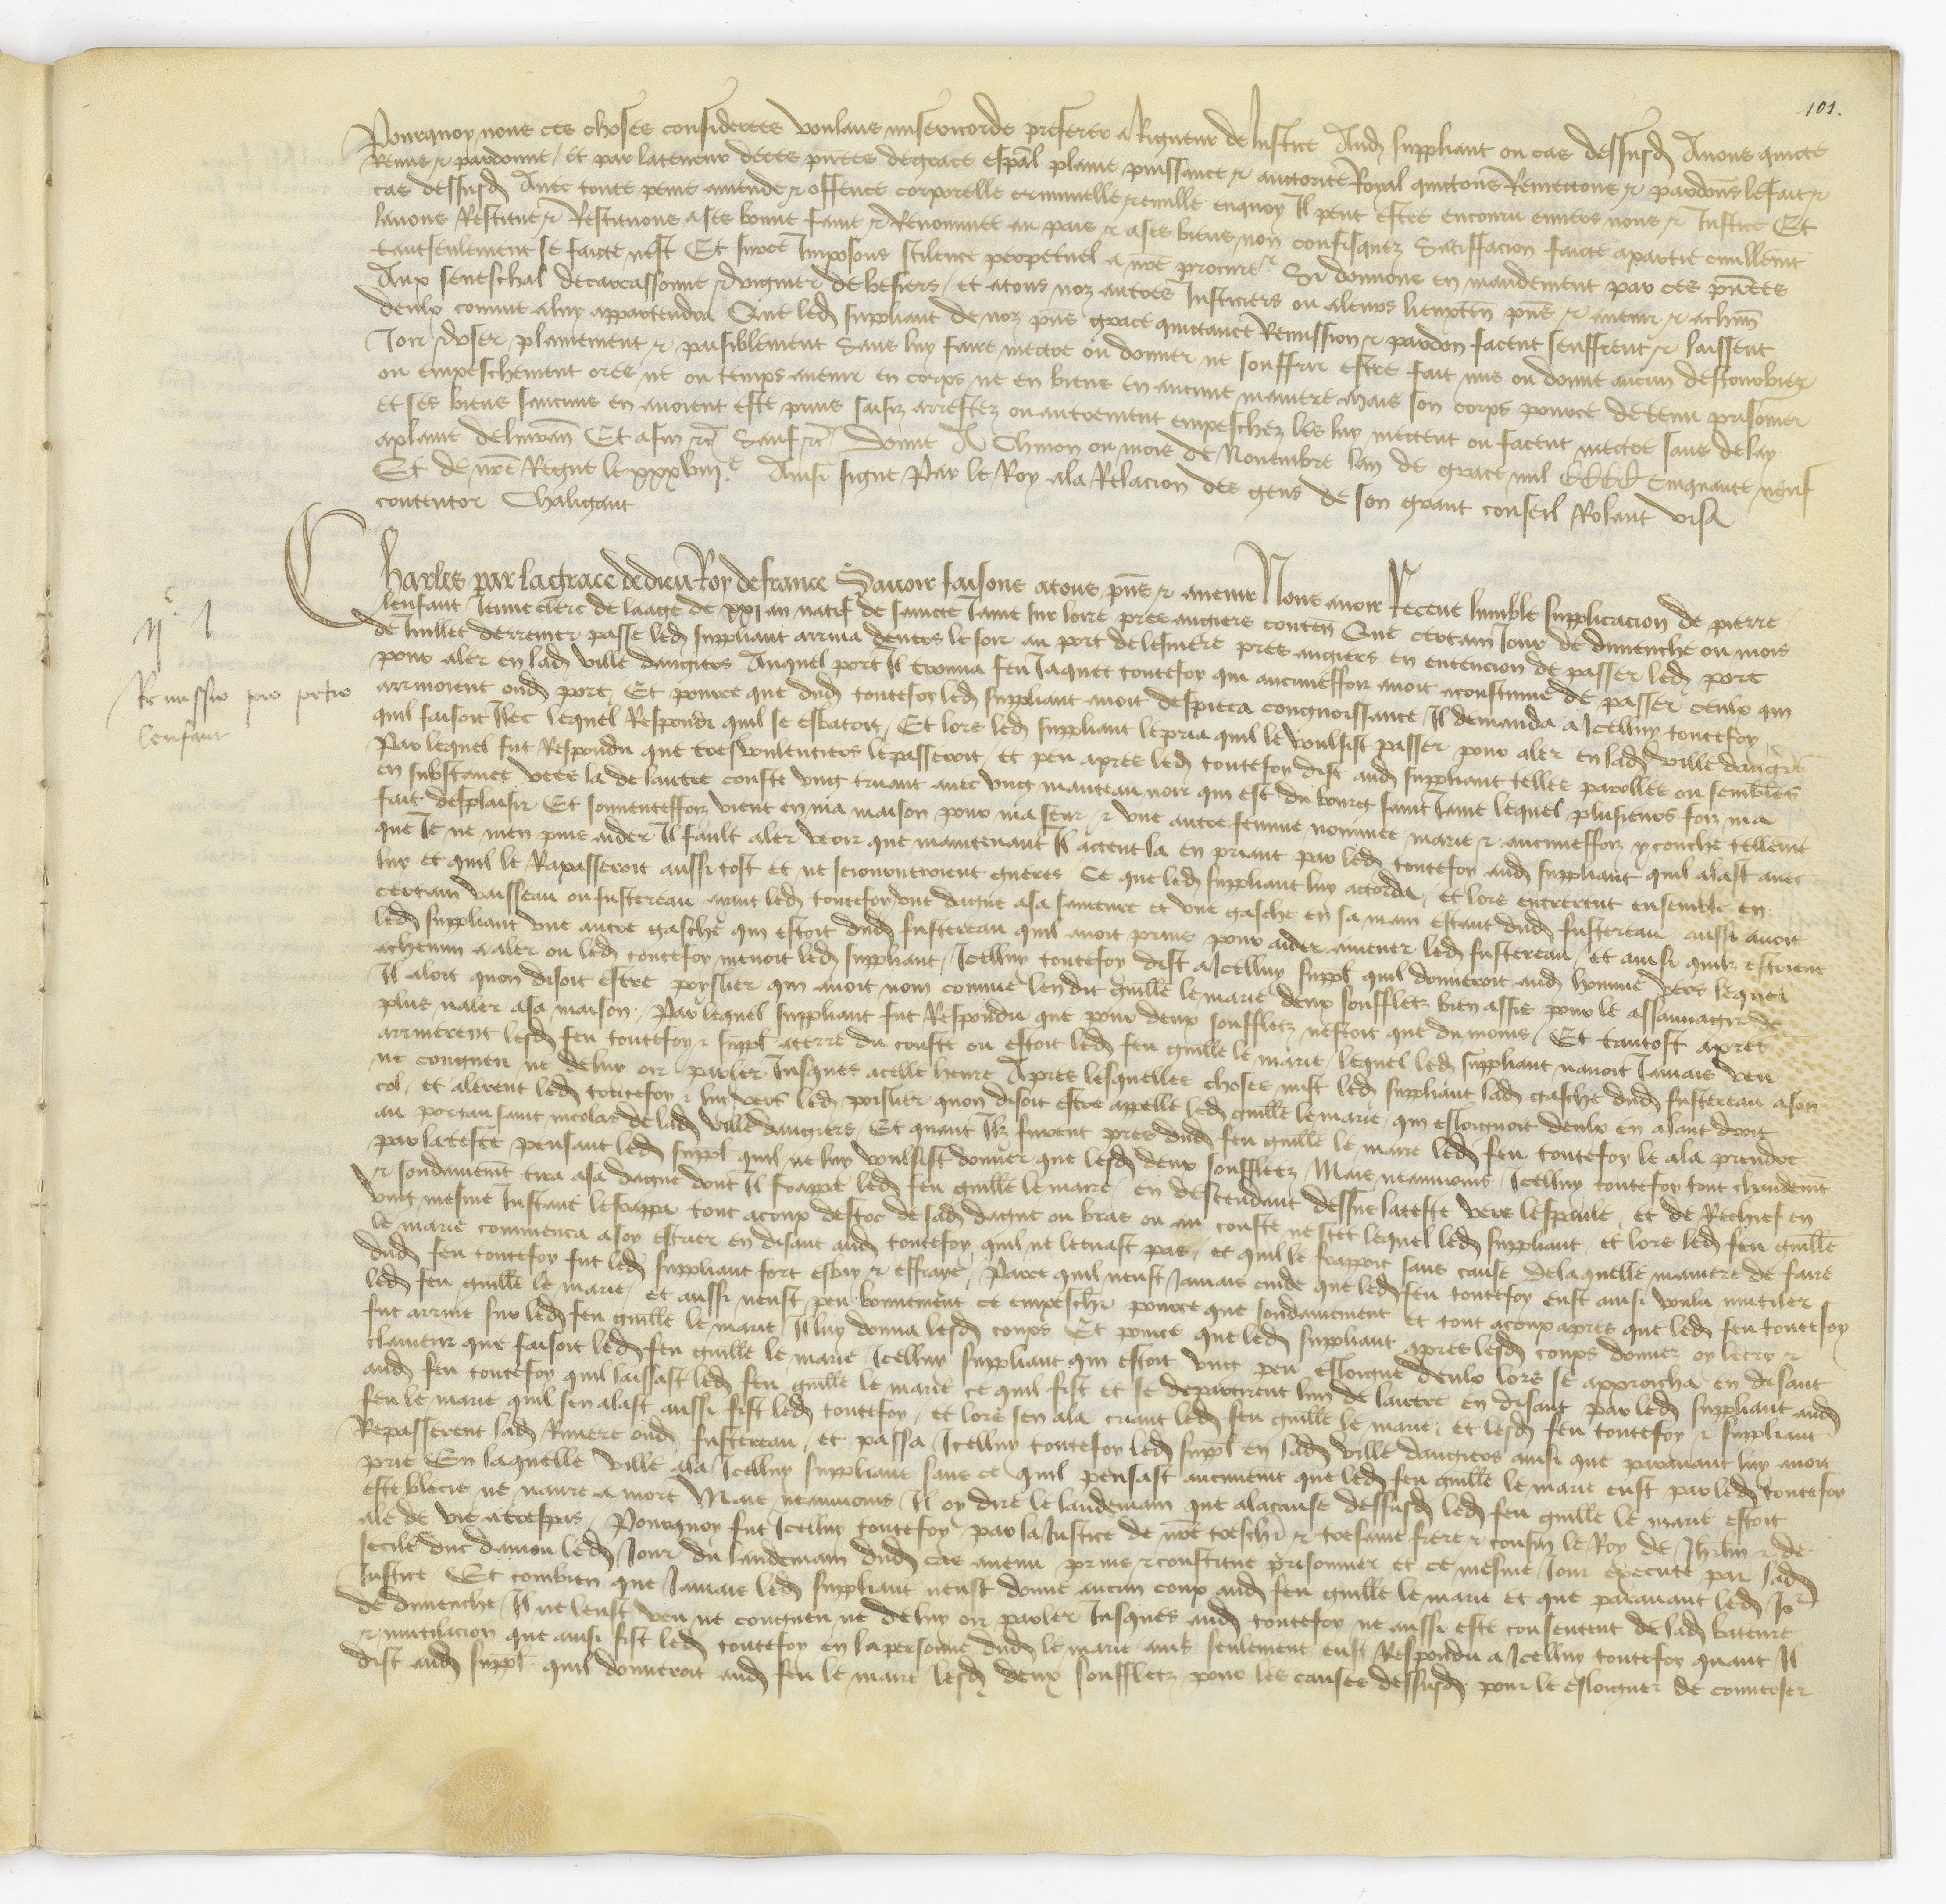 101.
Pourquoy nous ces choses considerees voulans misericorde preferer a Rigueur de Justice Aud suppliant ou cas dessusd Avons quicte
Remis & pardonne / et par la teneur de ces pntes de grace espal plaine puissance & auctorite Royal quictons Remectons & pardons le fait &
cas dessusd Avec toute peine amende & offence corporelle criminelle & civille enquoy Il peut estre encouru envers nous & Justice Et
lavons Restitue & Restituons a ses bonne fame & Renommee au pais & a ses biens non confisquez Satisffacion faicte a partie civillemt
tant seulement se faicte nest Et surce Imposons silence perpetuel a nre procureur Si donnons en mandement par ces pntes
Aux seneschal de carcassonne & viguier de besiers / et a tous noz autres Justiciers ou a leurs lieuxten pns & avenir & a chun
deulx comme a luy appartendra Que led suppliant de noz pns grace quictance Remission & pardon facent seuffrent & laissent
Joir & user plainement & paisiblement Sans luy faire mectre ou donner ne souffrir estre fait mis ou donne aucun destourbier
ou empeschement ores ne ou temps avenir en corps ne en biens en aucune maniere Mais son corps pource detenu prisonier
et ses biens saucuns en avoient este prins saisiz arrestez ou autrement empeschez les luy mectent ou facent mectre sans delay
a plaine delivran Et afin &c Sauf &c Donne A Chinon ou mois de Novembre lan de grace mil CCCC Cinquante neuf
Et de nre Regne le xxxviije Ainsi signe Par le Roy a la Relacion des gens de son grant conseil Rolant visa
contentor Chaligaut
Charles par la grace de dieu Roy de france Savoir faisons a tous pns & avenir Nous avoir Receue lumble supplicacion de pierre
lenfant Jeune clerc de laage de xxj an natif de saincte Jame sur loire pres angiers conten Que certain Jour de dimenche ou mois
de Juillet derrenier passe led suppliant arriva devers le soir au port de lesviere pres angiers en entencion de passer led port
pour aler en lad ville dangiers Auquel port Il trouva feu Jaquet toutefoy qui aucuneffoiz avoit acoustume de passer ceulx qui
arrivoient oud port Et pource que dud toutefoy led suppliant avoit despieca congnoissance / Il demanda a Icelluy toutefoy
quil faisoit Ilec lequel Respondi quil se esbatoit / Et lors led suppliant le pria quil le voulsist passer pour aler en lad ville dangrs
Par lequel fut Respondu que tresvoulentiers le passeroit / et peu apres led toutefoy dist aud suppliant telles parolles ou semblables
en substance vees la de lautre couste ung truant avec ung manteau noir qui est du bourg saint Jame lequel plusieurs foiz ma
fait desplaisir Et souventeffoiz vient en ma maison pour ma seur & une autre femme nommee marie & aucuneffoiz y couche tellemt
que Je ne men puis aider Il fault aler veoir que maintenant Il actent la en priant par led toutefoy aud suppliant quil alast avec
luy et quil le Rapasseroit aussi tost et ne sejourneroient gueres Ce que led suppliant luy accorda / et lors entrerent ensemble en
certain vaisseau ou fustereau ayant led toutefoy une dague a sa saincture et une gasche en sa main estant dud fustereau aussi avoit
led suppliant une autre gasche qui estoit dud fustereau quil avoit prins pour aider a mener led fustereau / et ainsi quilz estoient
a chemin a aler ou led toutefoy menoit led suppliant / Icelluy toutefoy dist a Icelluy suppl quil donneroit aud homme vers lequel
Il aloit quon disoit estre poyslier qui avoit nom comme len dit guille le marie deux souffletz bien assis pour le assauvagir de
plus naler a sa maison / Par lequel suppliant fut Respondu que pour deux souffletz nestoit que du moins / Et tantost apres
arriverent lesd feu toutefoy & suppl a terre du couste ou estoit led feu guille le marie / lequel led suppliant navoit Jamais veu
ne congneu ne de luy oir parler Jusques a celle heure Apres lesquelles choses mist led suppliant lad gasche dud fustereau a son
col / et alerent led toutefoy & luy vers led poislier quon disoit estre appelle led guille le marie / qui esloignoit deulx en alant droit
au portau saint nicolas de lad ville dangiers / Et quant Ilz furent pres dud feu guille le marie led feu toutefoy le ala prendre
par la teste pensant led suppl quil ne luy voulsist donner que lesd deux souffletz Mais neanmoins / Icelluy toutefoy tout chaudemt
& soudainemt tira a sa dague dont Il frappe led feu guille le marie / en descendant dessus la teste vers lespaule / et de Rechief en
ung mesme Instant le frappa tout a coup destoc de sad dague ou bras ou au couste ne scet lequel led suppliant / et lors led feu guille
le marie commenca a soy escrier en disant aud toutefoy quil ne le tuast pas / et quil le frappoit sans cause de laquelle maniere de faire
dud feu toutefoy fut led suppliant fort esbay & effraye / Parce quil neust Jamais cuide que led feu toutefoy eust ainsi voulu mutiler
led feu guille le marie / et aussi neust peu bonnement ce empescher pource que soudainement et tout a coup apres que led feu toutefoy
fut arrive sur led feu guille le marie Il luy donna lesd coups Et pource que led suppliant apres lesd coups donnez oy le cry &
clameur que faisoit led feu guille le marie / Icelluy suppliant qui estoit ung peu esloigne deulx lors se approucha en disant
aud feu toutefoy quil laissast led feu guille le marie ce quil fist et se departirent lun de lautre en disant par led suppliant aud
feu le marie quil sen alast aussi fist led toutefoy / et lors sen ala criant led feu guille le marie / et lesd feu toutefoy & suppliant
Repasserent lad Riviere oud fustereau / et passa Icelluy toutefoy led suppl en lad ville dangiers ainsi que paravant luy avoit
prie En laquelle ville ala Icelluy suppliant sans ce quil pensast aucunemt que led feu guille le marie eust par led toutefoy
este blecie ne navre a mort Mais neanmoins / Il oy dire le landemain que a la cause dessusd led feu guille le marie estoit
ale de vie a trespas / Pourquoy fut Icelluy toutefoy / par la Justice de nre treschr & tresame frere & cousin le Roy de Jhrlm & de
secile duc danjou led Jour du landemain dud cas avenu prins & constitue prisonnier et ce mesme Jour execute par lad
Justice Et combien que Jamais led suppliant neust donne aucun coup aud feu guille le marie et que paravant led Jor
de dimenche / Il ne leust veu ne congneu ne de luy oir parler Jusques aud toutefoy ne aussi este consentent de lad bateure
& mutilacion que ainsi fist led toutefoy en la personne dud le marie mais seulement eust Respondu a Icelluy toutefoy quant Il
dist aud suppl quil donneroit aud feu le marie lesd deux souffletz pour les causes dessusd pour le esloigner de converser
Remissio pro petro
lenfant